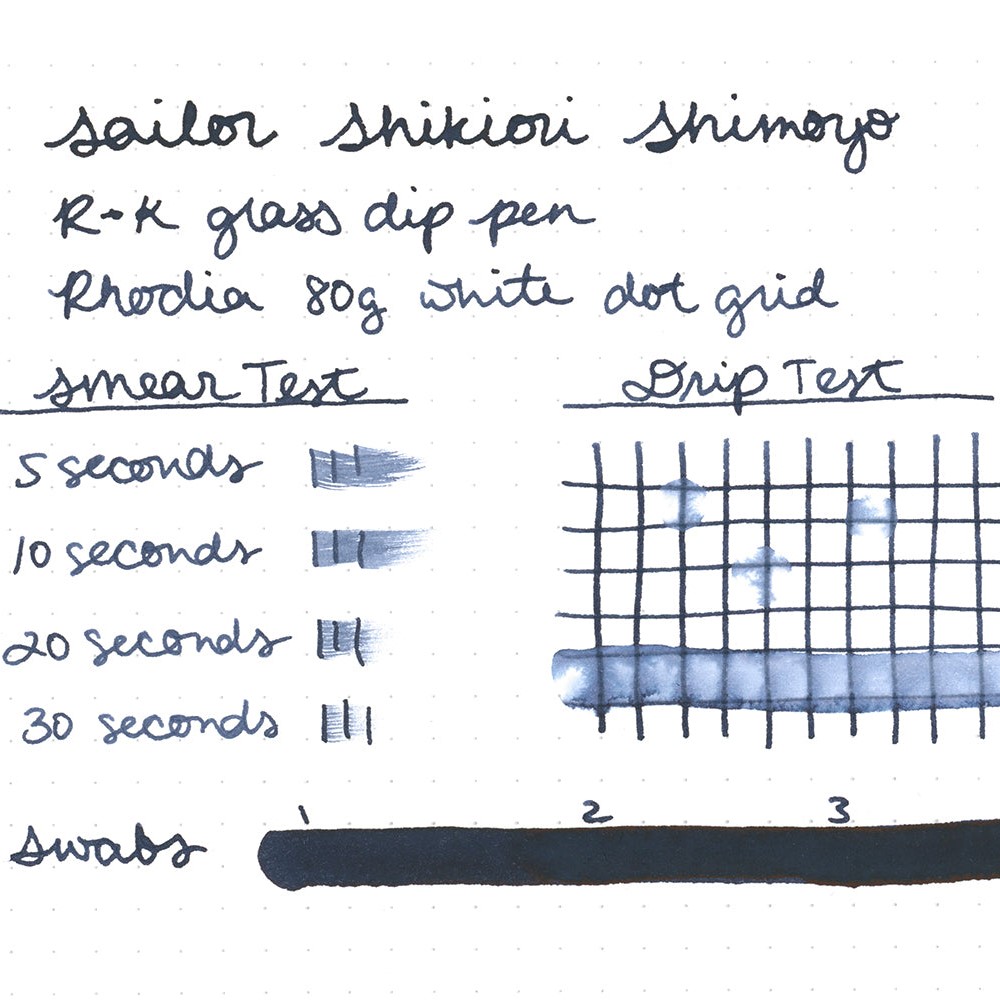 Sailor Shikiori Shimoyo
R-K glass dip pen
Rhodia 80g white dot grid
Smear Test
Drip Test
5 seconds
10 seconds
20 seconds
30 seconds
1 2 3
Swabs